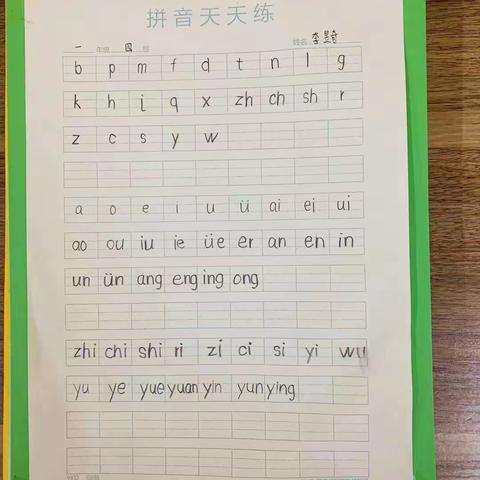 拼音天天练
一 年级 四 班 姓名 李
b p m f d t n l g
k h j q x zh ch sh r
z c s y w
a o e i u ü ai ei ui
ao ou iu ie üe er an en in
un ün ang eng ing ong
zhi chi shi ri zi ci si yi wu
yu ye yue yuan yin yun ying